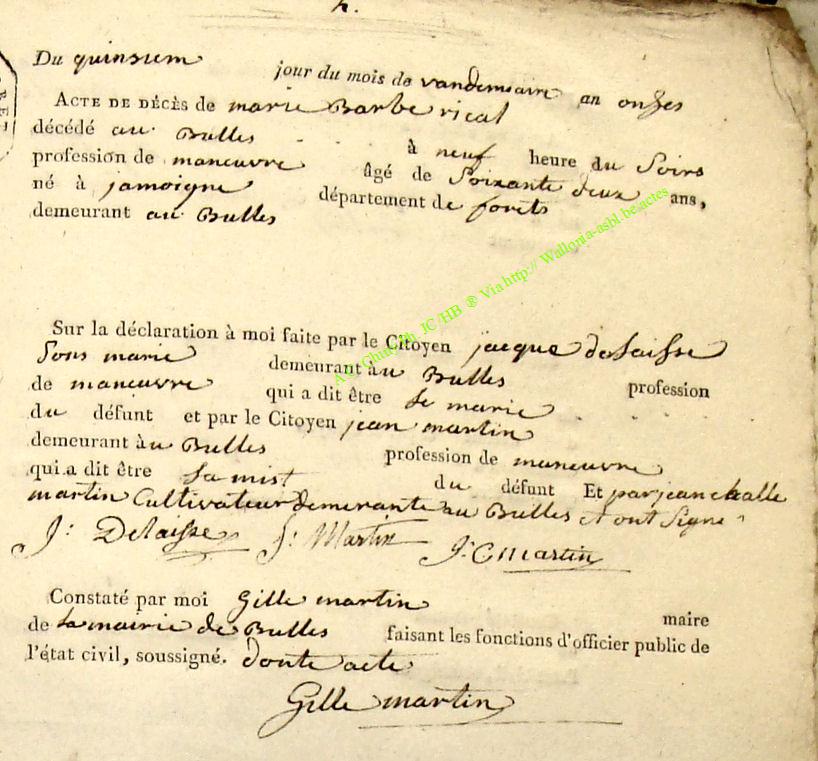 Du quinsiem jour du mois de vandemiaire an onzes
ACTE DE DÉCÈS de marie Barbe rical
décédé au Bulles à neuf heure du Soirs
profession de maneuvre âgé de Soixante deux ans,
né à jamoigne département de forêts
demeurant au Bulles
Sur la déclaration à moi faite par le Citoyen jacque delaisse
Sous marie demeurant àu Bulles profession
de maneuvre qui a dit être le marie
du défunt et par le Citoyen jean martin
demeurant àu Bulles profession de maneuvre
qui a dit être Sa mist du défunt Et par jean challe
martin Cultivateur demerante au Bulles et ont Signe
J: Delaisse J: Martin J: C martin
Constaté par moi Gille martin maire
de la mairie de Bulles faisant les fonctions d'officier public de
l'état civil, soussigné. donte acte
Gille martin
JC HB ® Via http:// Wallonia-asbl.be.actes